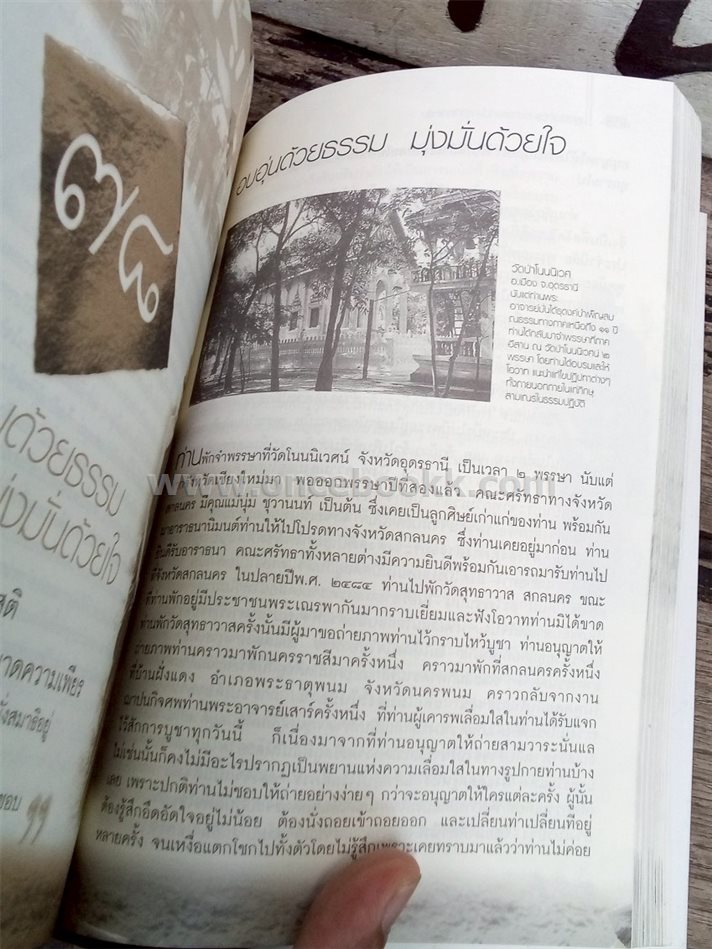 ๓๘
ด้วยธรรม
มุ่งมั่นด้วยใจ
สติ
าดความเพียร
ั่งสมาธิอยู่
ชอบ ๆๆ
อบอุ่นด้วยธรรม มุ่งมั่นด้วยใจ
วัดป่าโนนนิเวศ
อ.เมือง จ.อุดรธานี
นับแต่ท่านพระ
อาจารย์มั่นได้ธุดงค์บำเพ็ญสม
ณธรรมทางภาคเหนือถึง ๑๑ ปี
ท่านได้กลับมาจำพรรษาที่ภาค
อีสาน ณ วัดป่าโนนนิเวศน์ ๒
พรรษา โดยท่านได้อบรมและให้
โอวาท แนะนำแก้ไขปฏิปทาต่างๆ
ทั้งภายนอกภายในแก่ภิกษุ
สามเณรในธรรมปฏิบัติ
ท่านพักจำพรรษาที่วัดโนนนิเวศน์ จังหวัดอุดรธานี เป็นเวลา ๒ พรรษา นับแต่
จังหวัดเชียงใหม่มา พอออกพรรษาปีที่สองแล้ว คณะศรัทธาทางจังหวัด
สกลนคร มีคุณแม่นุ่ม ชุวานนท์ เป็นต้น ซึ่งเคยเป็นลูกศิษย์เก่าแก่ของท่าน พร้อมกัน
มาอาราธนานิมนต์ท่านให้ไปโปรดทางจังหวัดสกลนคร ซึ่งท่านเคยอยู่มาก่อน ท่าน
ยินดีรับอาราธนา คณะศรัทธาทั้งหลายต่างมีความยินดีพร้อมกันเอารถมารับท่านไป
ที่จังหวัดสกลนคร ในปลายปีพ.ศ. ๒๔๘๔ ท่านไปพักวัดสุทธาวาส สกลนคร ขณะ
ที่ท่านพักอยู่มีประชาชนพระเณรพากันมากราบเยี่ยมและฟังโอวาทท่านมิได้ขาด
ท่านพักวัดสุทธาวาสครั้งนั้นมีผู้มาขอถ่ายภาพท่านไว้กราบไหว้บูชา ท่านอนุญาตให้
ถ่ายภาพท่านคราวมาพักนครราชสีมาครั้งหนึ่ง คราวมาพักที่สกลนครครั้งหนึ่ง
ที่บ้านฝั่งแดง อำเภอพระธาตุพนม จังหวัดนครพนม คราวกลับจากงาน
ฌาปนกิจศพท่านพระอาจารย์เสาร์ครั้งหนึ่ง ที่ท่านผู้เคารพเลื่อมใสในท่านได้รับแจก
ไว้สักการบูชาทุกวันนี้ ก็เนื่องมาจากที่ท่านอนุญาตให้ถ่ายสามวาระนั่นแล
ไม่เช่นนั้นก็คงไม่มีอะไรปรากฏเป็นพยานแห่งความเลื่อมใสในทางรูปกายท่านบ้าง
เลย เพราะปกติท่านไม่ชอบให้ถ่ายอย่างง่ายๆ กว่าจะอนุญาตให้ใครแต่ละครั้ง ผู้นั้น
ต้องรู้สึกอึดอัดใจอยู่ไม่น้อย ต้องนั่งถอยเข้าถอยออก และเปลี่ยนท่าเปลี่ยนที่อยู่
หลายครั้ง จนเหงื่อแตกโชกไปทั้งตัวโดยไม่รู้สึกเพราะเคยทราบมาแล้วว่าท่านไม่ค่อย